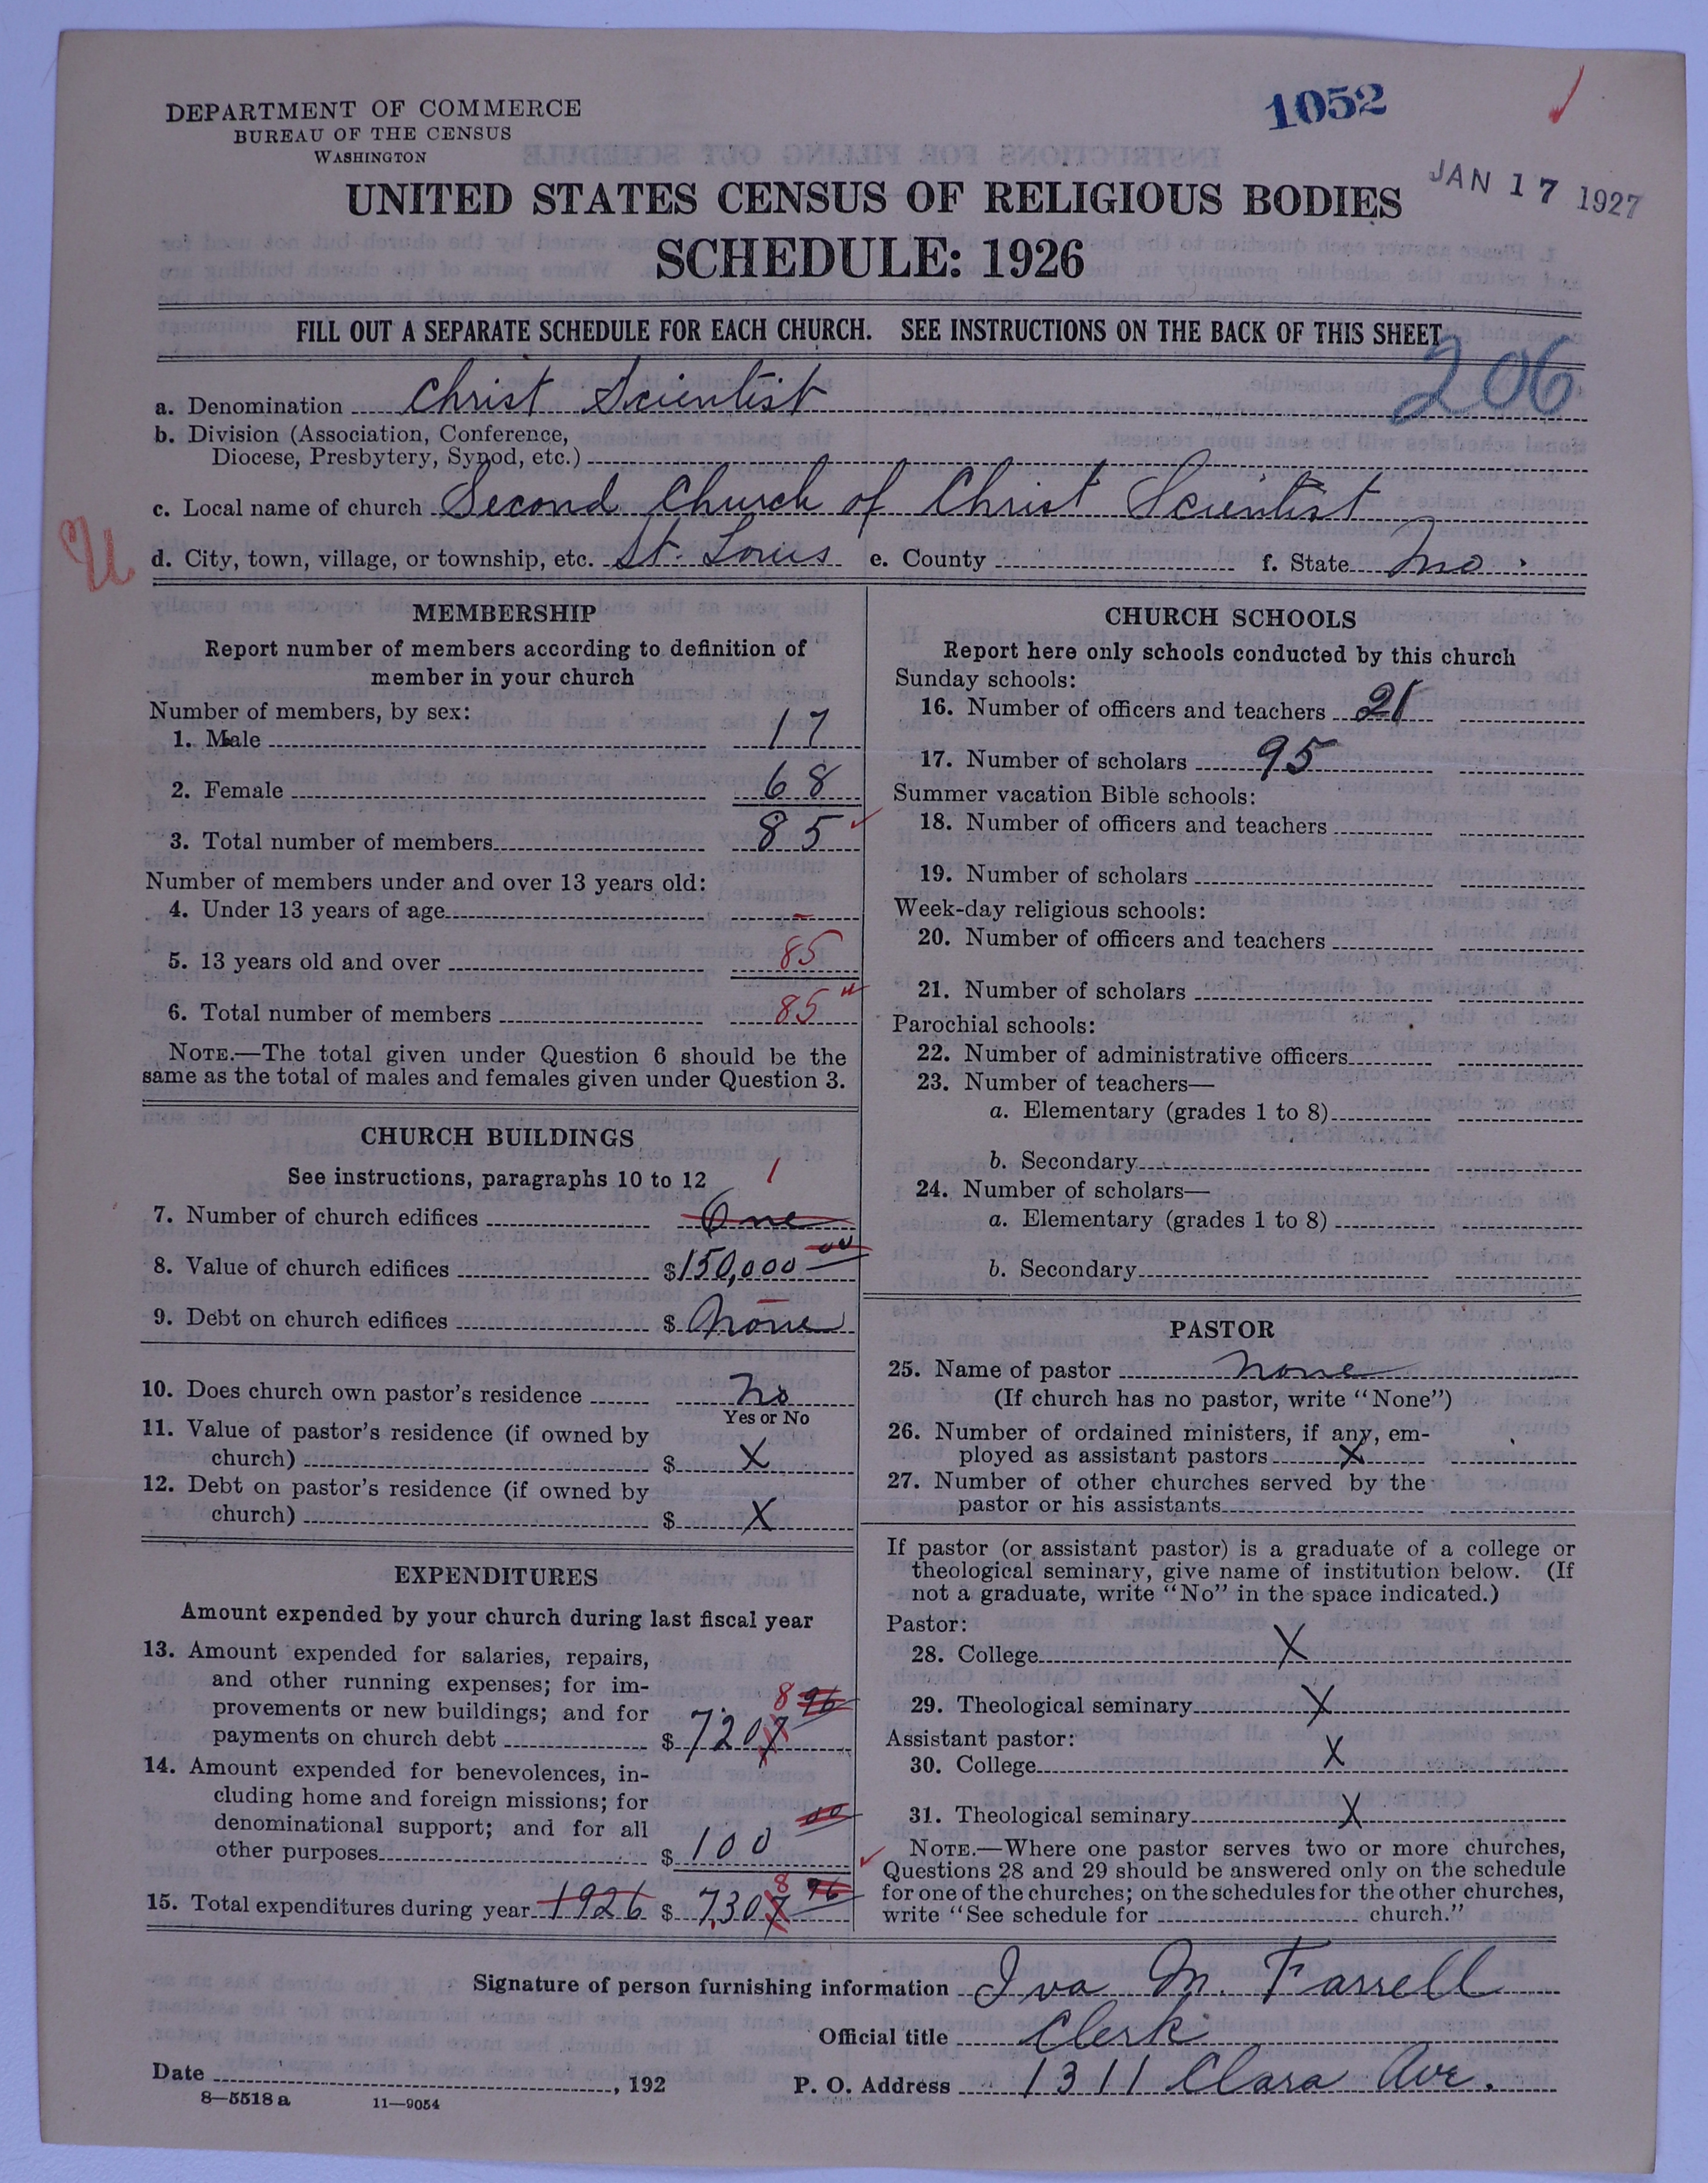 1052
DEPARTMENT OF COMMERCE
BUREAU OF THE CENSUS
WASHINGTON
JAN 17 1927
UNITED STATES CENSUS OF RELIGIOUS BODIES
SCHEDULE: 1926
FILL OUT A SEPARATE SCHEDULE FOR EACH CHURCH. SEE INSTRUCTIONS ON THE BACK OF THIS SHEET
206
a. Denomination Christ Scientist
b. Division (Association, Conference,
Diocese, Presbytery, Synod, etc.)
c. Local name of church Second Church of Christ Scientist
U
d. City, town, village, or township, etc. St. Louis e. County f. State Mo.
MEMBERSHIP
Report number of members according to definition of
member in your church
Number of members, by sex:
1. Male 17
2. Female 68
3. Total number of members 85
Number of members under and over 13 years old:
4. Under 13 years of age –
5. 13 years old and over 85
6. Total number of members 85
NOTE.—The total given under Question 6 should be the
same as the total of males and females given under Question 3.
CHURCH BUILDINGS
See instructions, paragraphs 10 to 12
1
7. Number of church edifices One
8. Value of church edifices $150,000 00
9. Debt on church edifices $ None
10. Does church own pastor's residence No
Yes or No
11. Value of pastor's residence (if owned by
church) $ X
12. Debt on pastor's residence (if owned by
church) $ X
EXPENDITURES
Amount expended by your church during last fiscal year
13. Amount expended for salaries, repairs,
and other running expenses; for im-
provements or new buildings; and for
8 96
payments on church debt $ 7207
14. Amount expended for benevolences, in-
cluding home and foreign missions; for
denominational support; and for all
other purposes $ 100 00
8 96
15. Total expenditures during year 1926 $ 7,307
CHURCH SCHOOLS
Report here only schools conducted by this church
Sunday schools:
16. Number of officers and teachers 21
17. Number of scholars 95
Summer vacation Bible schools:
18. Number of officers and teachers
19. Number of scholars
Week-day religious schools:
20. Number of officers and teachers
21. Number of scholars
Parochial schools:
22. Number of administrative officers
23. Number of teachers—
a. Elementary (grades 1 to 8)
b. Secondary
24. Number of scholars—
a. Elementary (grades 1 to 8)
b. Secondary
PASTOR
25. Name of pastor None
(If church has no pastor, write "None")
26. Number of ordained ministers, if any, em-
ployed as assistant pastors X
27. Number of other churches served by the
pastor or his assistants
If pastor (or assistant pastor) is a graduate of a college or
theological seminary, give name of institution below. (If
not a graduate, write "No" in the space indicated.)
Pastor:
28. College X
29. Theological seminary X
Assistant pastor:
30. College X
31. Theological seminary X
NOTE.—Where one pastor serves two or more churches,
Questions 28 and 29 should be answered only on the schedule
for one of the churches; on the schedules for the other churches,
write "See schedule for church."
Signature of person furnishing information Iva M. Farrell
Official title Clerk
Date , 192 P. O. Address 1311 Clara Ave.
8—5518 a 11—9054